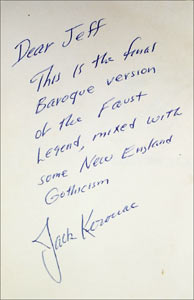 Dear Jeff
This is the final
Baroque version
of the Faust
Legend, mixed with
some New England
Gothicism
Jack Kerouac